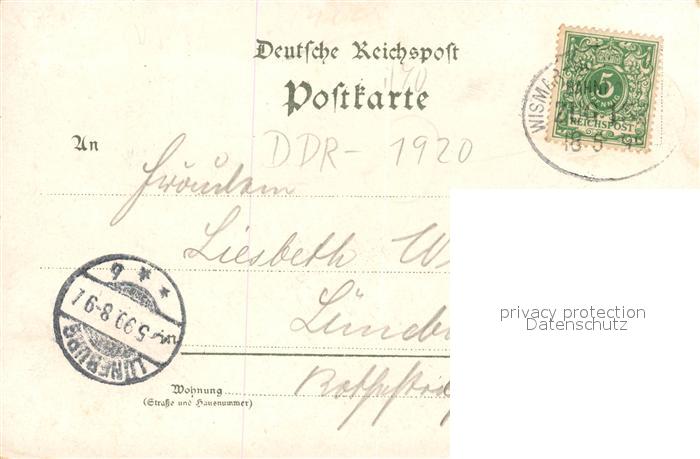 Deutsche Reichspost
Postkarte
An
DDR - 1920
Fräulein
Liesbeth W
Lünebu
Wohnung
(Straße und Hausnummer)
5
REICHSPOST
WISMAR
LÜNEBURG
5.99.8-9
privacy protection
Datenschutz